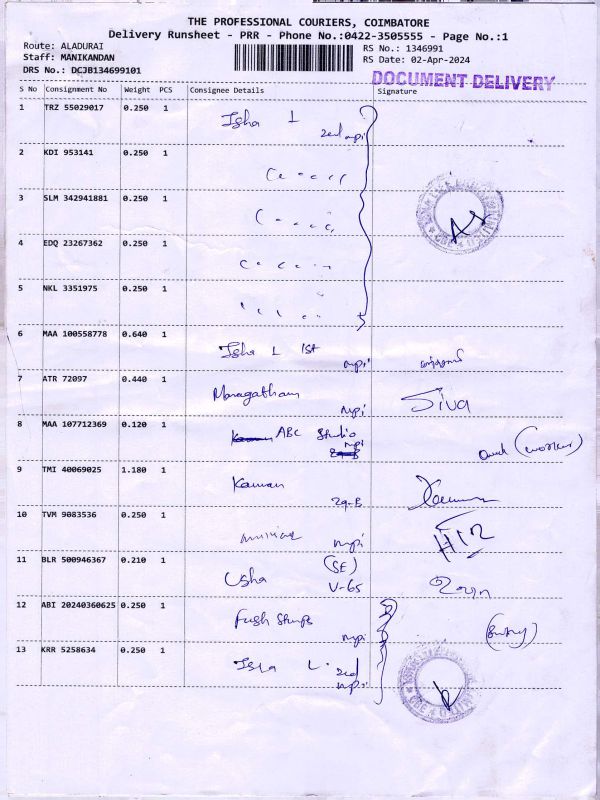 THE PROFESSIONAL COURIERS, COIMBATORE
Delivery Runsheet - PRR - Phone No.:0422-3505555 - Page No.:1
Route: ALADURAI RS No.: 1346991
Staff: MANIKANDAN RS Date: 02-Apr-2024
DRS No.: DCJB134699101
DOCUMENT DELIVERY
S No Consignment No Weight PCS Consignee Details Signature
1 TRZ 55029017 0.250 1 Isha L
2nd mpi
2 KDI 953141 0.250 1
3 SLM 342941881 0.250 1
4 EDQ 23267362 0.250 1
5 NKL 3351975 0.250 1
6 MAA 100558778 0.640 1 Isha L 1st
mpi
7 ATR 72097 0.440 1 Maragatham
mpi Siva
8 MAA 107712369 0.120 1 ABC Studio
mpi (worker)
9 TMI 40069025 1.180 1 Kannan
29-B
10 TVM 9083536 0.250 1
mpi
11 BLR 500946367 0.210 1 (SE)
Usha V-65
12 ABI 20240360625 0.250 1
mpi
13 KRR 5258634 0.250 1 Isha L 2nd
mpi